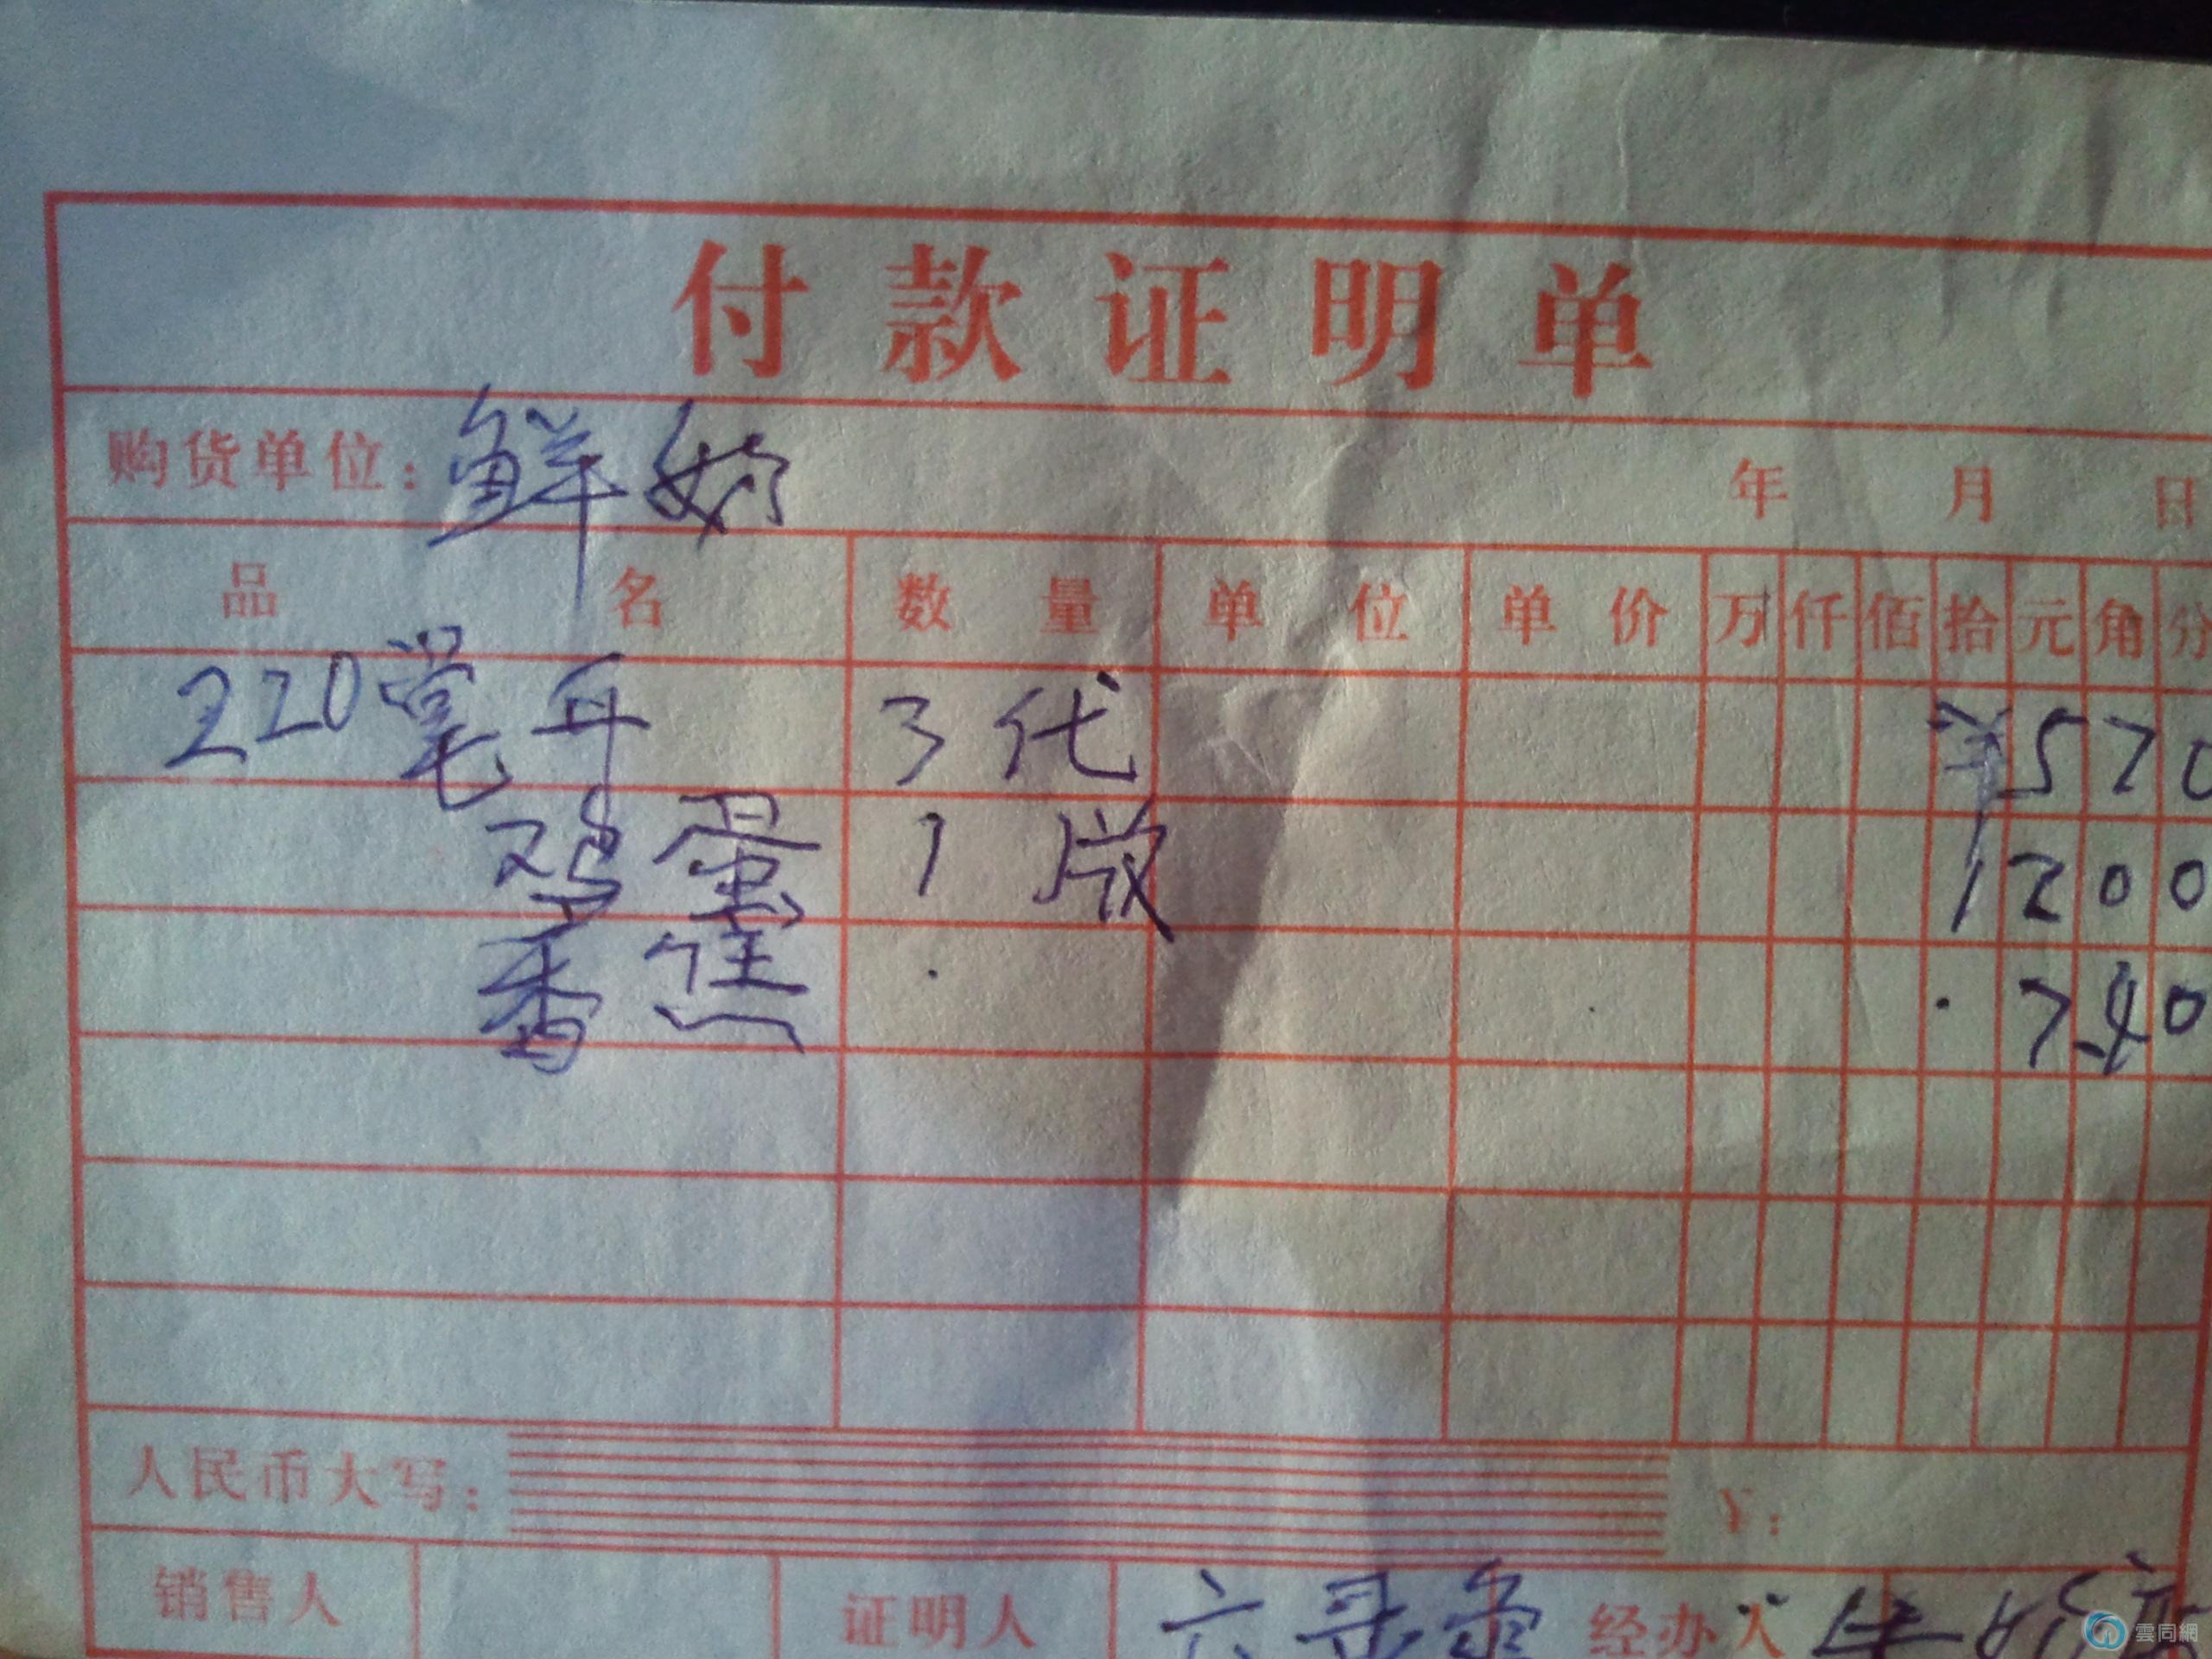 付款证明单
购货单位：鲜奶 年 月 日
品名 数量 单位 单价 万仟佰拾元角分
220毫升 3代 ¥570
鸡蛋 1版 1200
香蕉 740
人民币大写： ¥：
销售人 证明人 经办人
雲同網